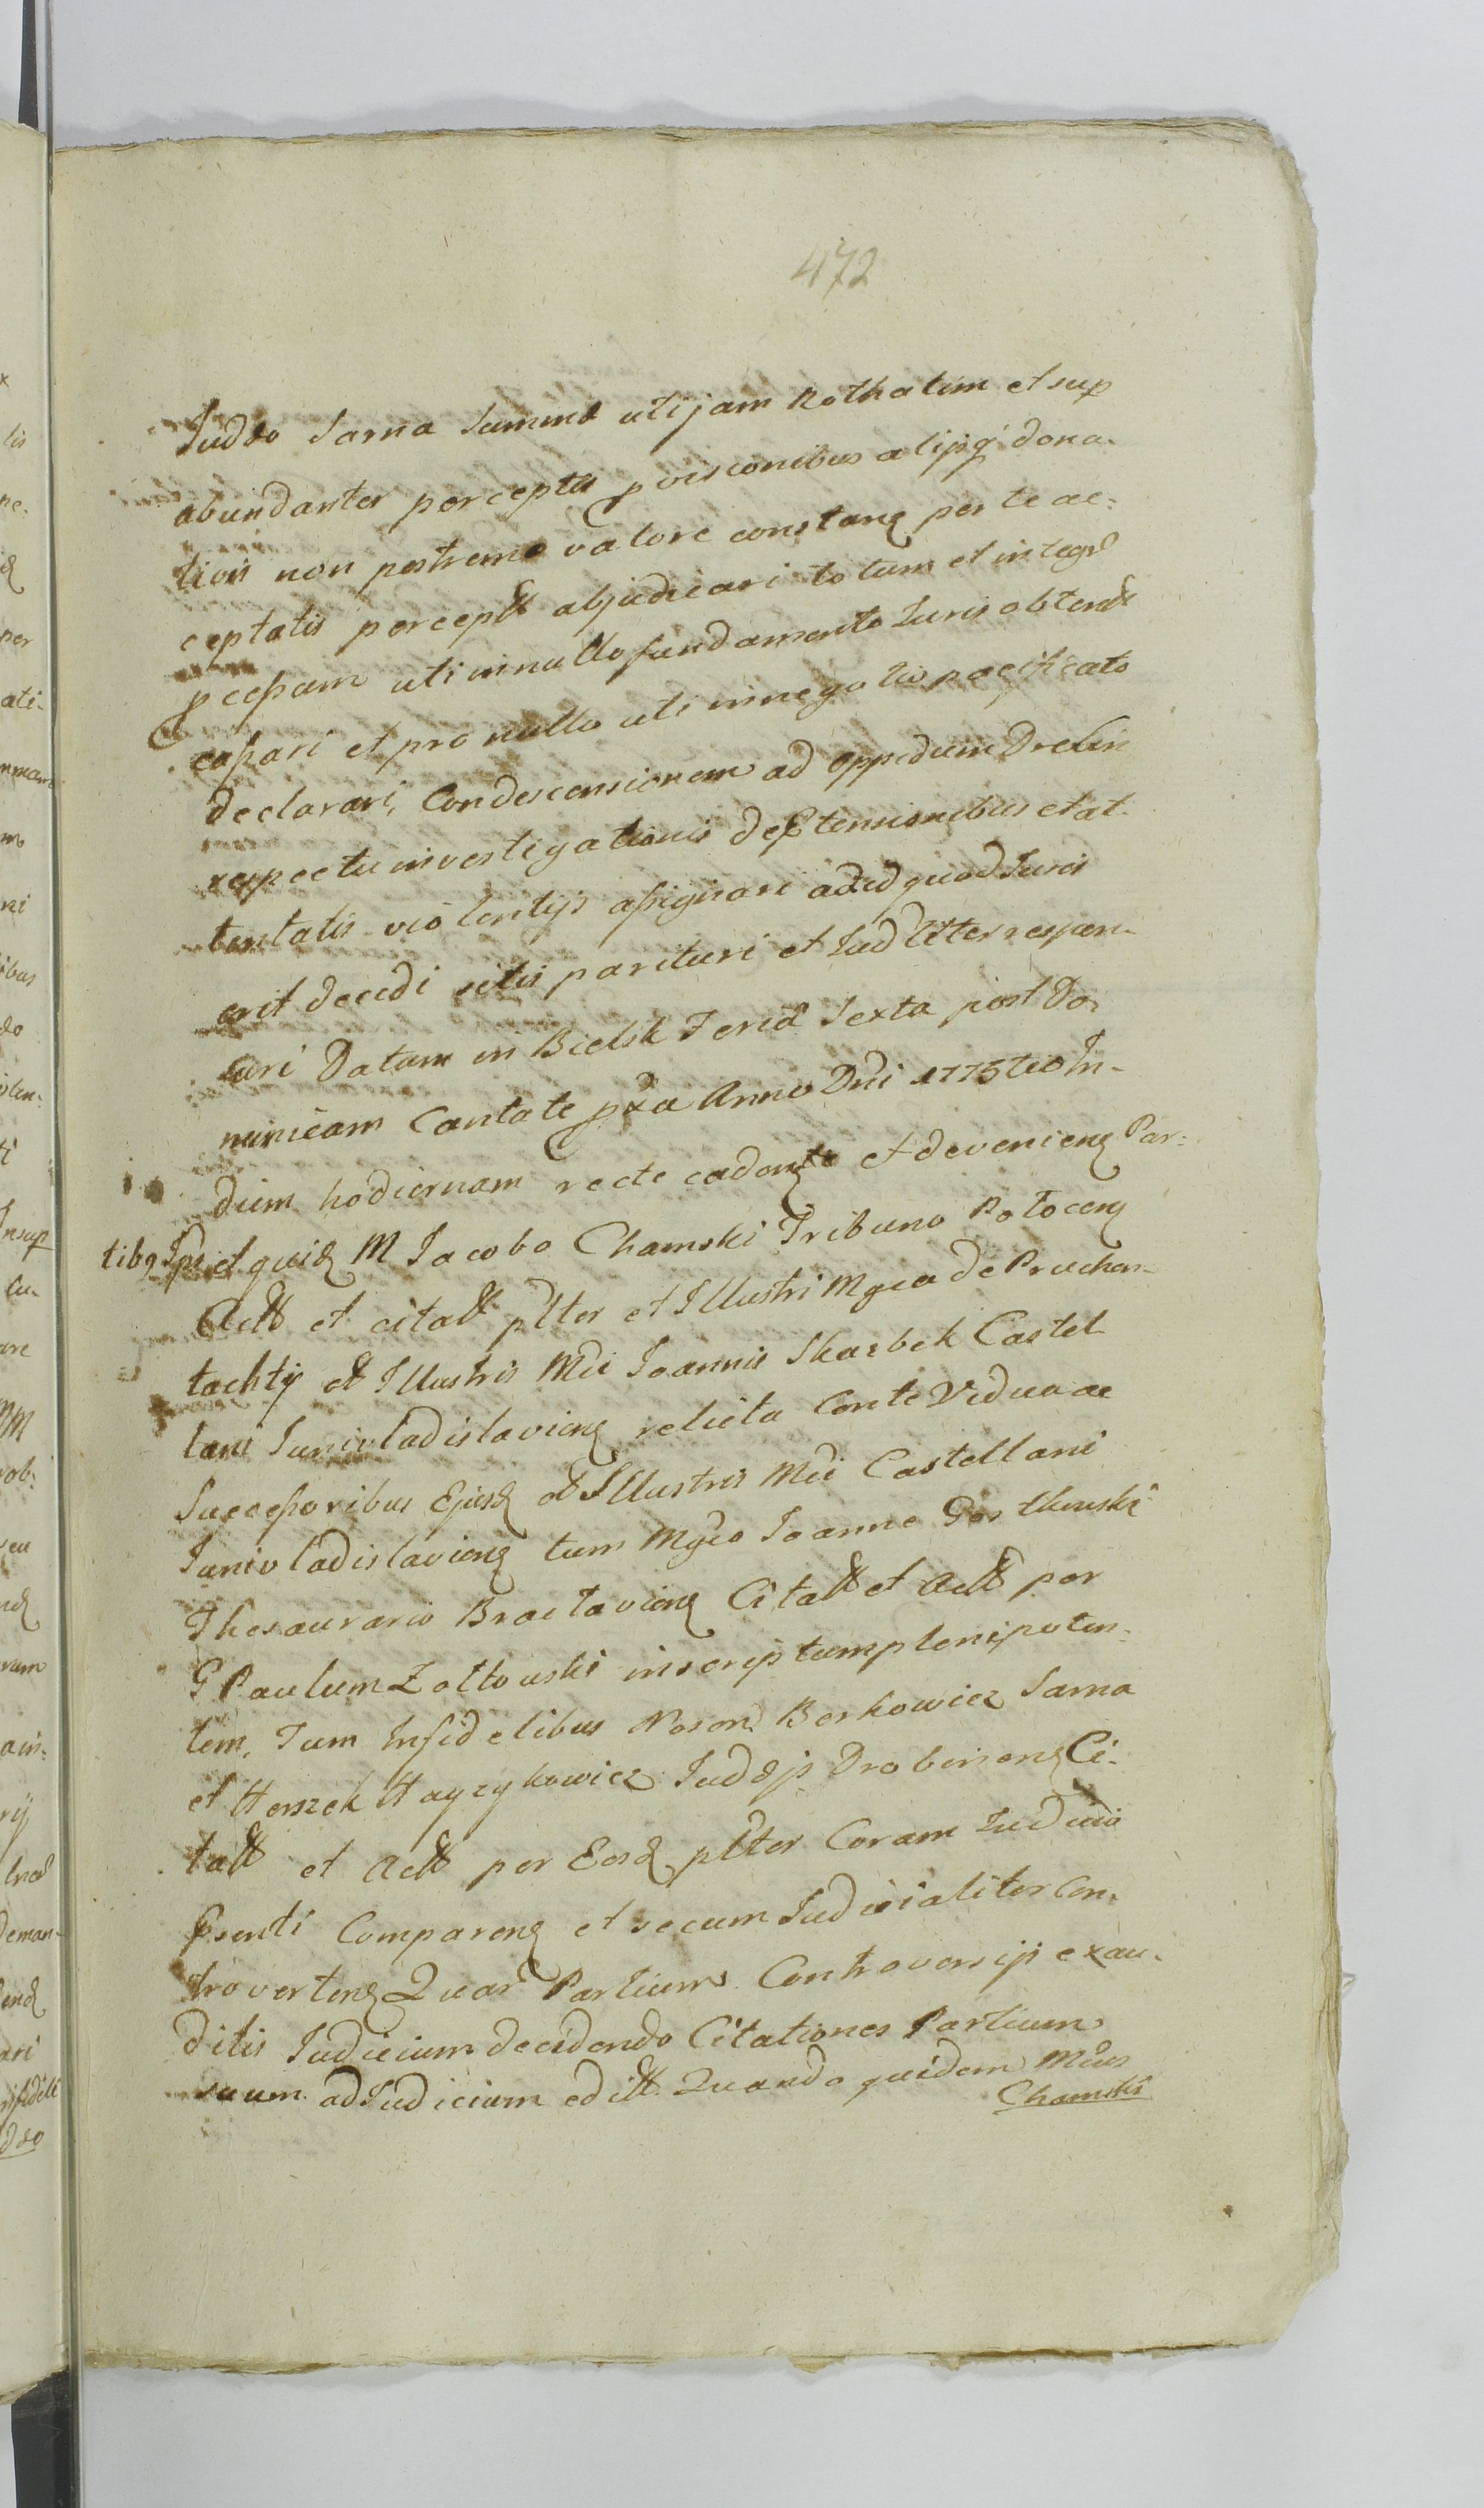 472
Juddo Sarna Summa uti jam Rothatim et sup
abundanter perceptis pvisionibus alijsq dona-
tivis non postremo valore constanq per te ac-
ceptatis perceptt abjudicari totum et integr
pcessum uti in nullo fundamento Juris obtent
cassari et pro nullo uti in negotio pacificato
declarari, Condescensionem ad oppidum Drobin
respectu investigationis de Extensionibus et at-
tentatis violentijs assignari ad id quod Juris
erit decidi sitis parituri et Judliter respon-
suri Datum in Bielsk Feria Sexta post Do-
minicam Cantate pxa Anno Dni 1775tio In-
diem hodiernam recte cadente et devenienq Par-
tibq Ipsi et quid M Jacobo Chamski Tribuno Plocenq
Actt et citatt plter et Illustri Mgca de Pruchen-
tachty et Illustris Mci Joannis Skarbek Castel
lani Junivladislavienq relicta Conte Vidua ac
Successoribus Ejusd ol Illustris Mci Castellani
Junivladislavienq tum Mgco Joanne Gostkowski
Thesaurario Braclavienq Citatt et Actt per
G Paulum Zottowski inscriptum plenipoten-
tem, Tum Infidelibus Noson Berkowicz Sarna
et Herszek Hayzykowicz Judeijs Drobinenq Ci-
tatt et Actt per Eosd plter Coram Judicio
psenti Comparenq et secum Judicialiter Con-
trovertenq Quar Partium Controversijs exau-
ditis Judicium decidendo Citationes Partium
suum ad Judicium editt Quando quidem Mcus
Chamski